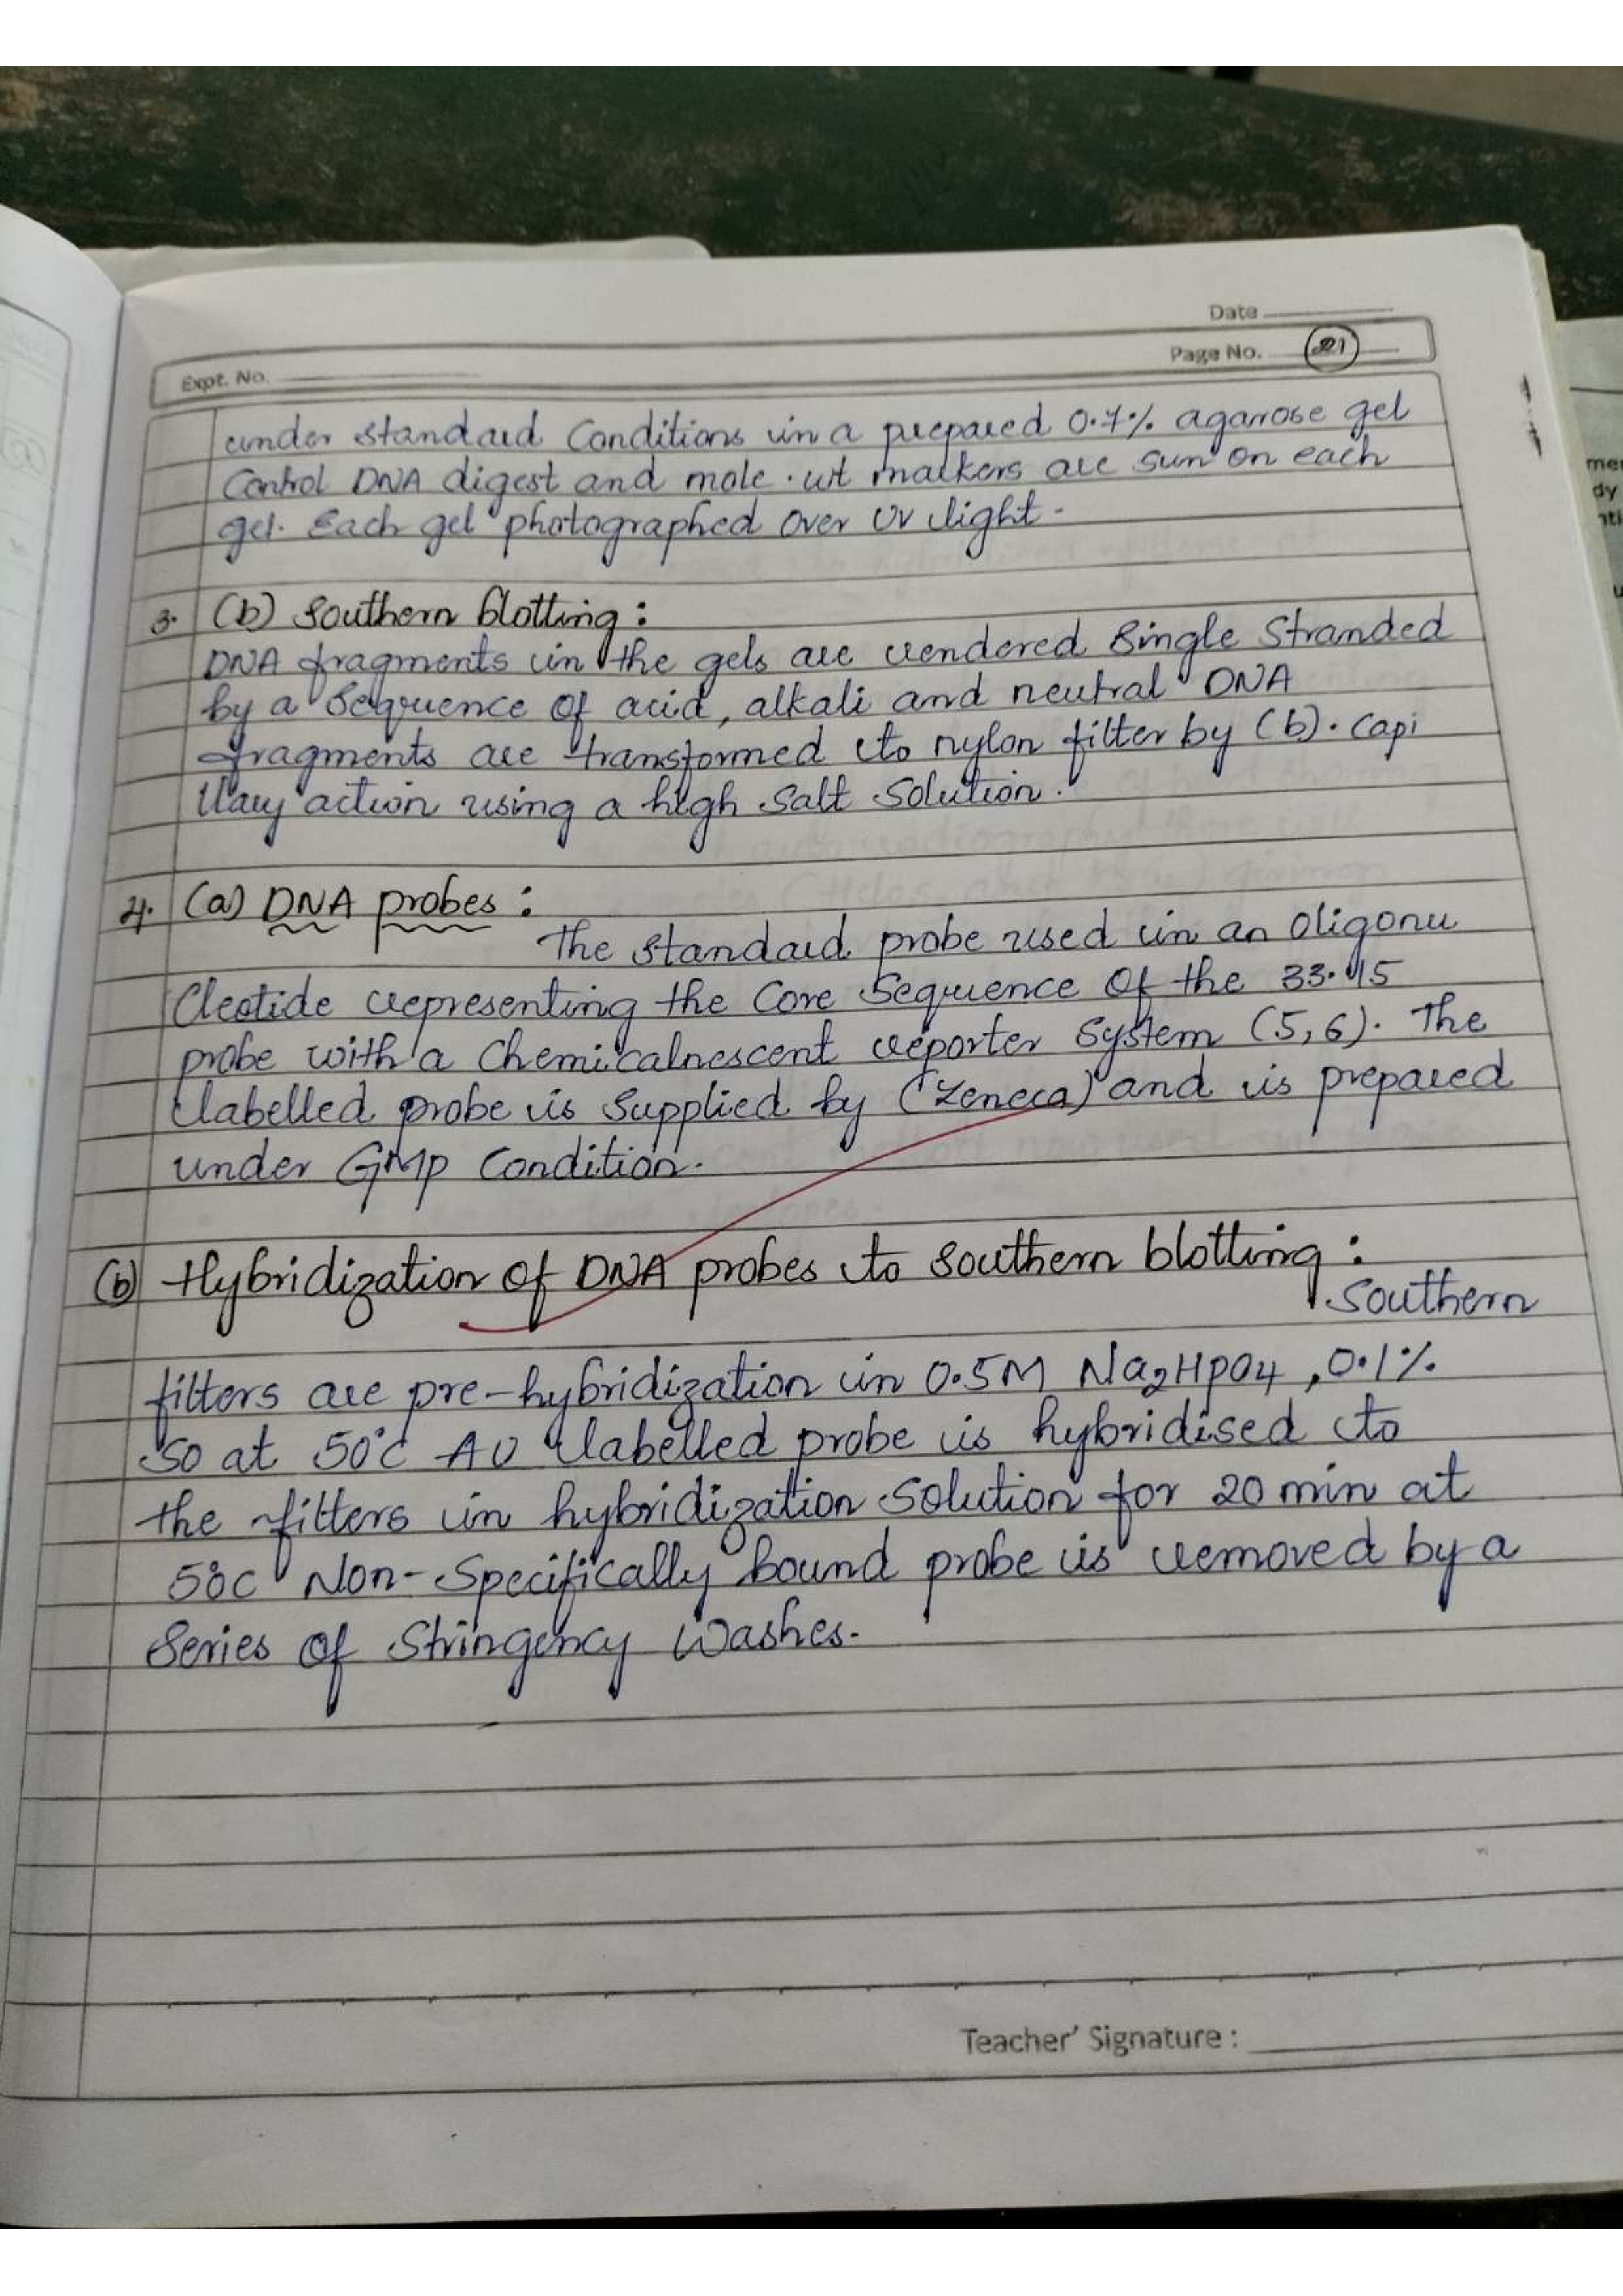 Date
Page No. 21
Expt. No.
under standard Conditions in a prepared 0.7% agarose gel
Control DNA digest and mole. wt markers are sun on each
gel. Each gel photographed over UV light.
3. (b) Southern blotting:
DNA fragments in the gels are rendered Single Stranded
by a Sequence of acid, alkali and neutral DNA
fragments are transformed to nylon filter by (b). Capi
llary action using a high Salt Solution.
4. (a) DNA probes:
The standard probe used in an Oligonu
Cleotide representing the Core Sequence Of the 33.15
probe with a Chemicalnescent reporter System (5,6). The
labelled probe is Supplied by (Zeneca) and is prepared
under GMP Condition.
(b) Hybridization of DNA probes to Southern blotting:
Southern
filters are pre-hybridization in 0.5M Na2HPO4, 0.1%
SO at 50°C AU labelled probe is hybridised to
the filters in hybridization Solution for 20 min at
50c Non-Specifically bound probe is removed by a
Series of Stringency Washes.
Teacher' Signature :